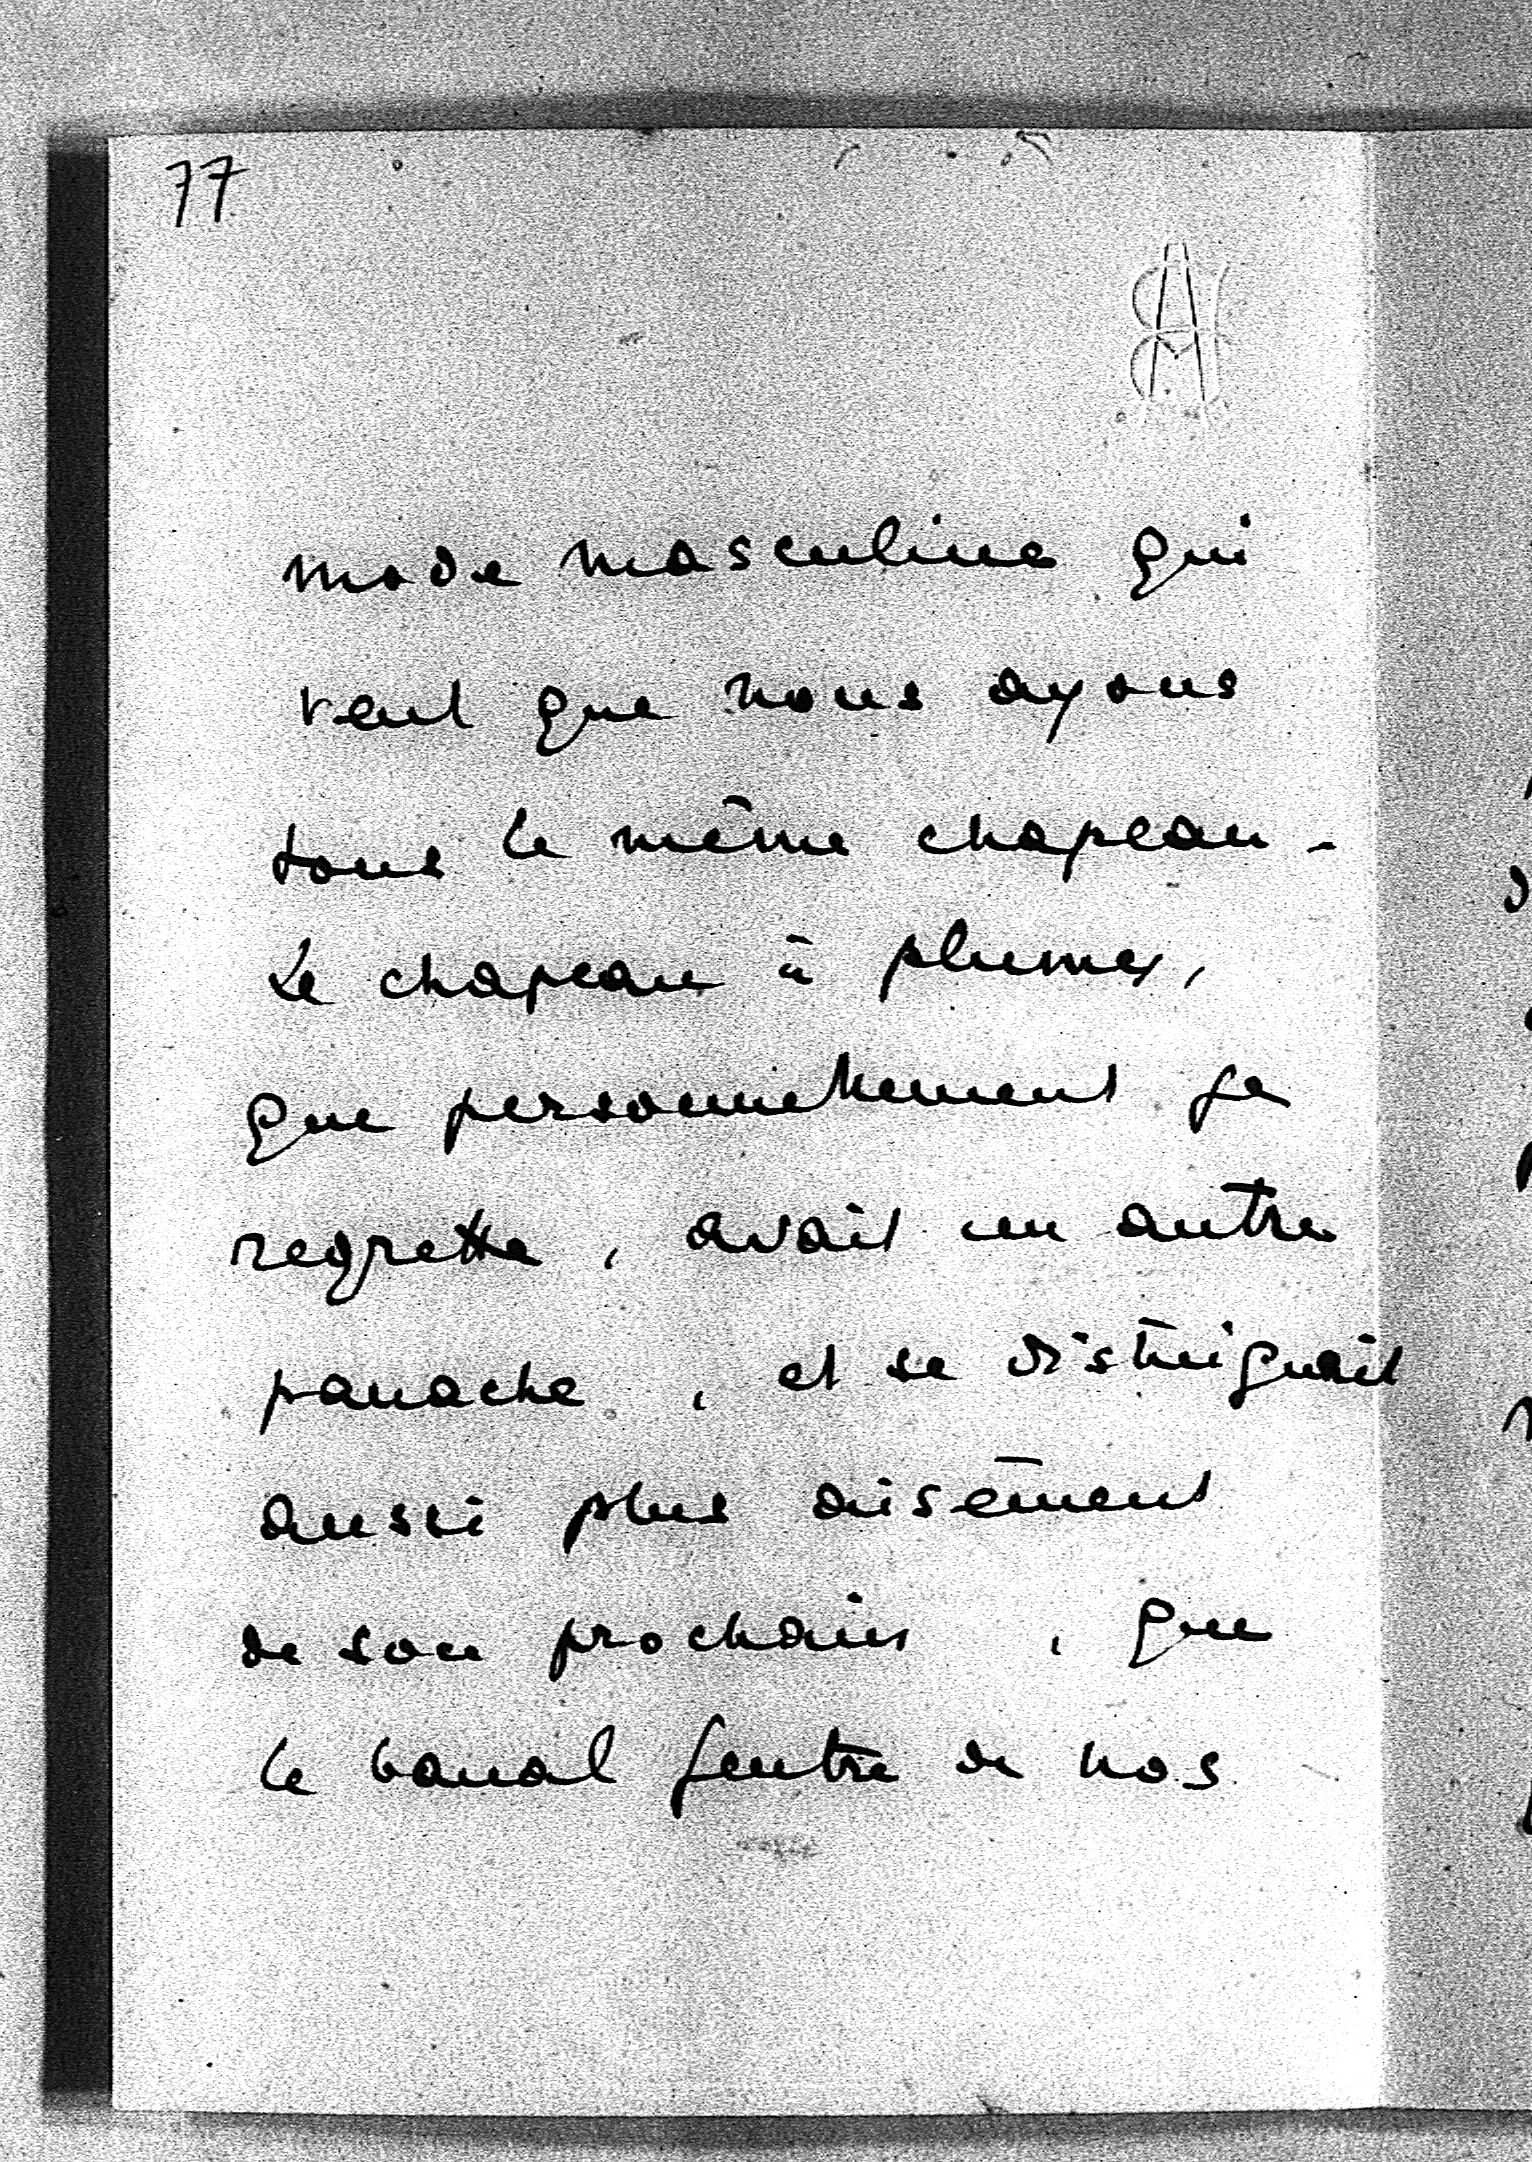 77
mode masculine qui
veut que nous ayons
tous le même chapeau.
Le chapeau à plumes,
que personnellement je
regrette, avait un autre
panache, et se distinguait
aussi plus aisément
de son prochain, que
le banal feutre de nos